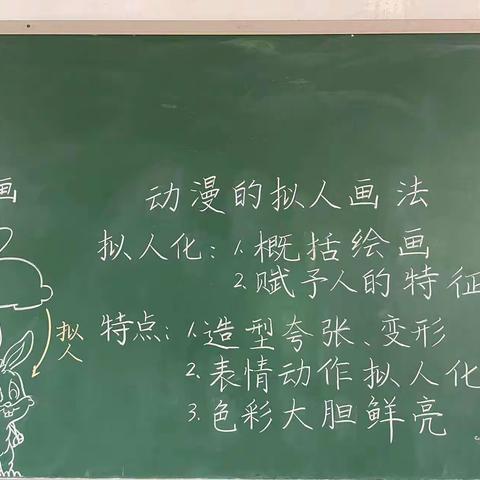 画
动漫的拟人画法
拟人化：1.概括绘画
2.赋予人的特征
特点：1.造型夸张、变形
拟人
2.表情动作拟人化
3.色彩大胆鲜亮